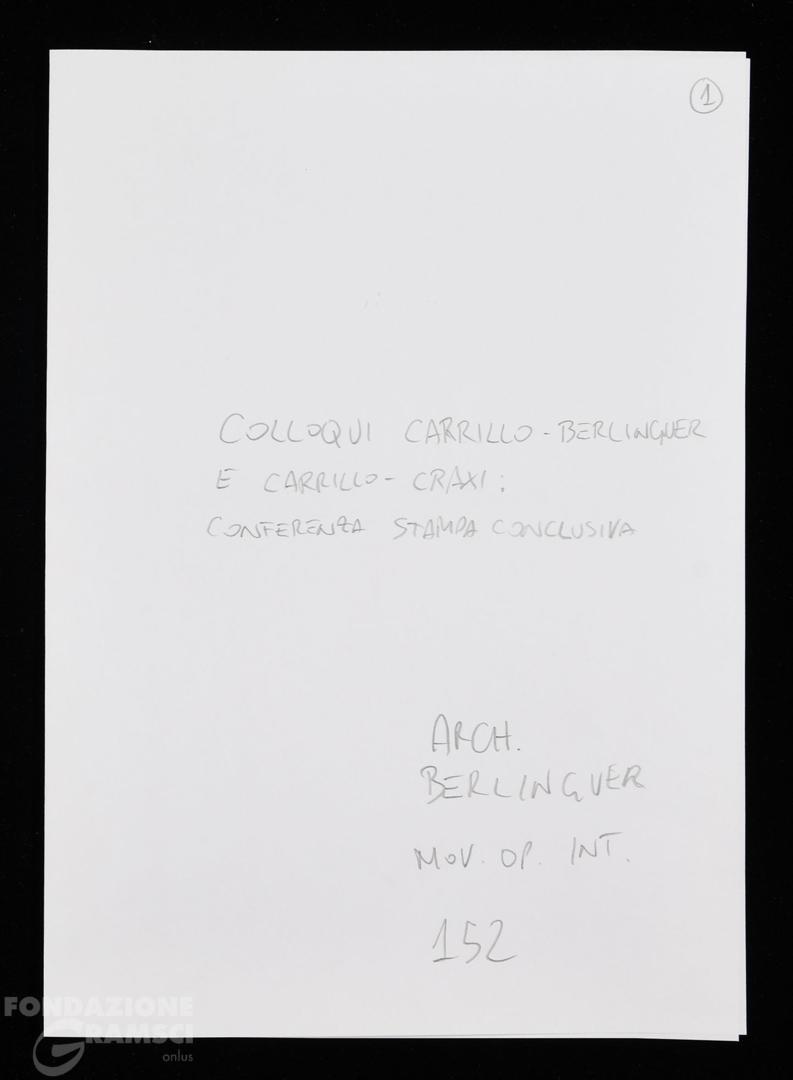 1
COLLOQUI CARRILLO - BERLINGUER
E CARRILLO - CRAXI:
CONFERENZA STAMPA CONCLUSIVA
ARCH.
BERLINGUER
MOV. OP. INT.
152
FONDAZIONE
GRAMSCI
onlus